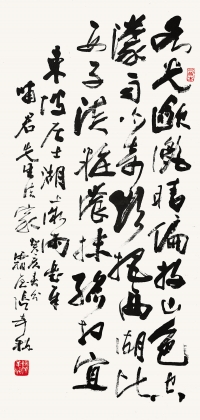 水光瀲灩晴偏好山色空
濛雨亦奇欲把西湖比
西子淡粧濃抹總相宜
東坡居士湖上
嘯君先生法家
癸亥春分